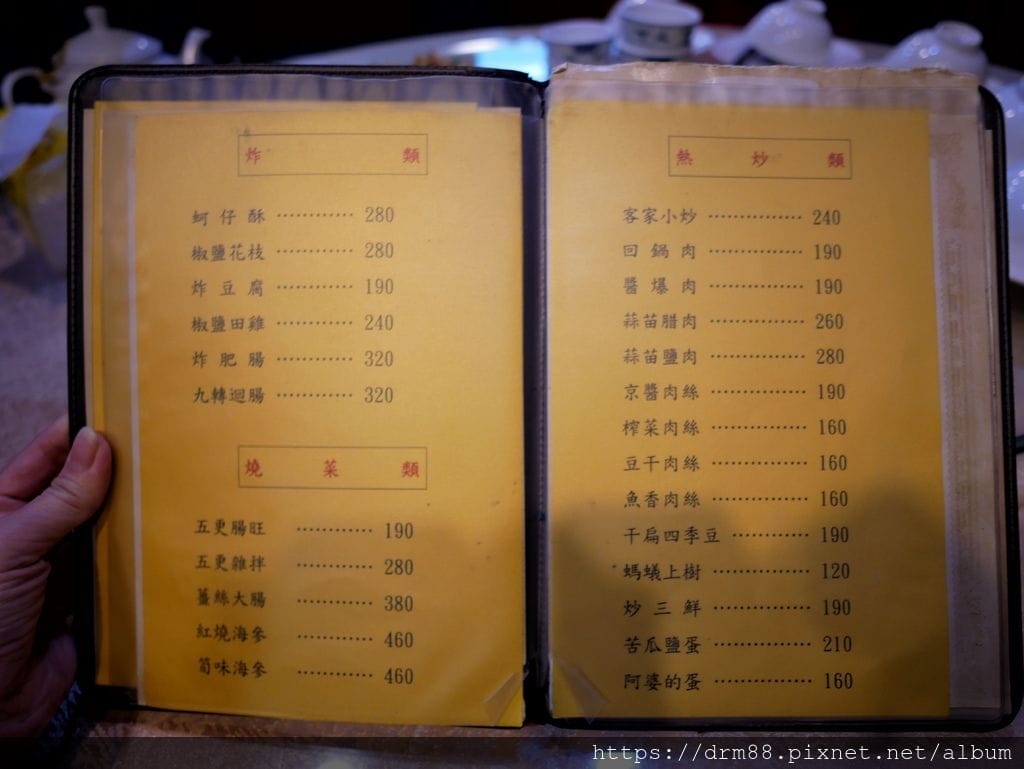 炸類
蚵仔酥 ············ 280
椒鹽花枝 ············ 280
炸豆腐 ············ 190
椒鹽田雞 ············ 240
炸肥腸 ············ 320
九轉迴腸 ············ 320
燒菜類
五更腸旺 ············ 190
五更雜拌 ············ 280
薑絲大腸 ············ 380
紅燒海參 ············ 460
筍味海參 ············ 460
熱炒類
客家小炒 ··············· 240
回鍋肉 ··············· 190
醬爆肉 ··············· 190
蒜苗腊肉 ··············· 260
蒜苗鹽肉 ··············· 280
京醬肉絲 ··············· 190
榨菜肉絲 ··············· 160
豆干肉絲 ··············· 160
魚香肉絲 ··············· 160
干扁四季豆 ············ 190
螞蟻上樹 ··············· 120
炒三鮮 ··············· 190
苦瓜鹽蛋 ··············· 210
阿婆的蛋 ··············· 160
https://drm88.pixnet.net/album